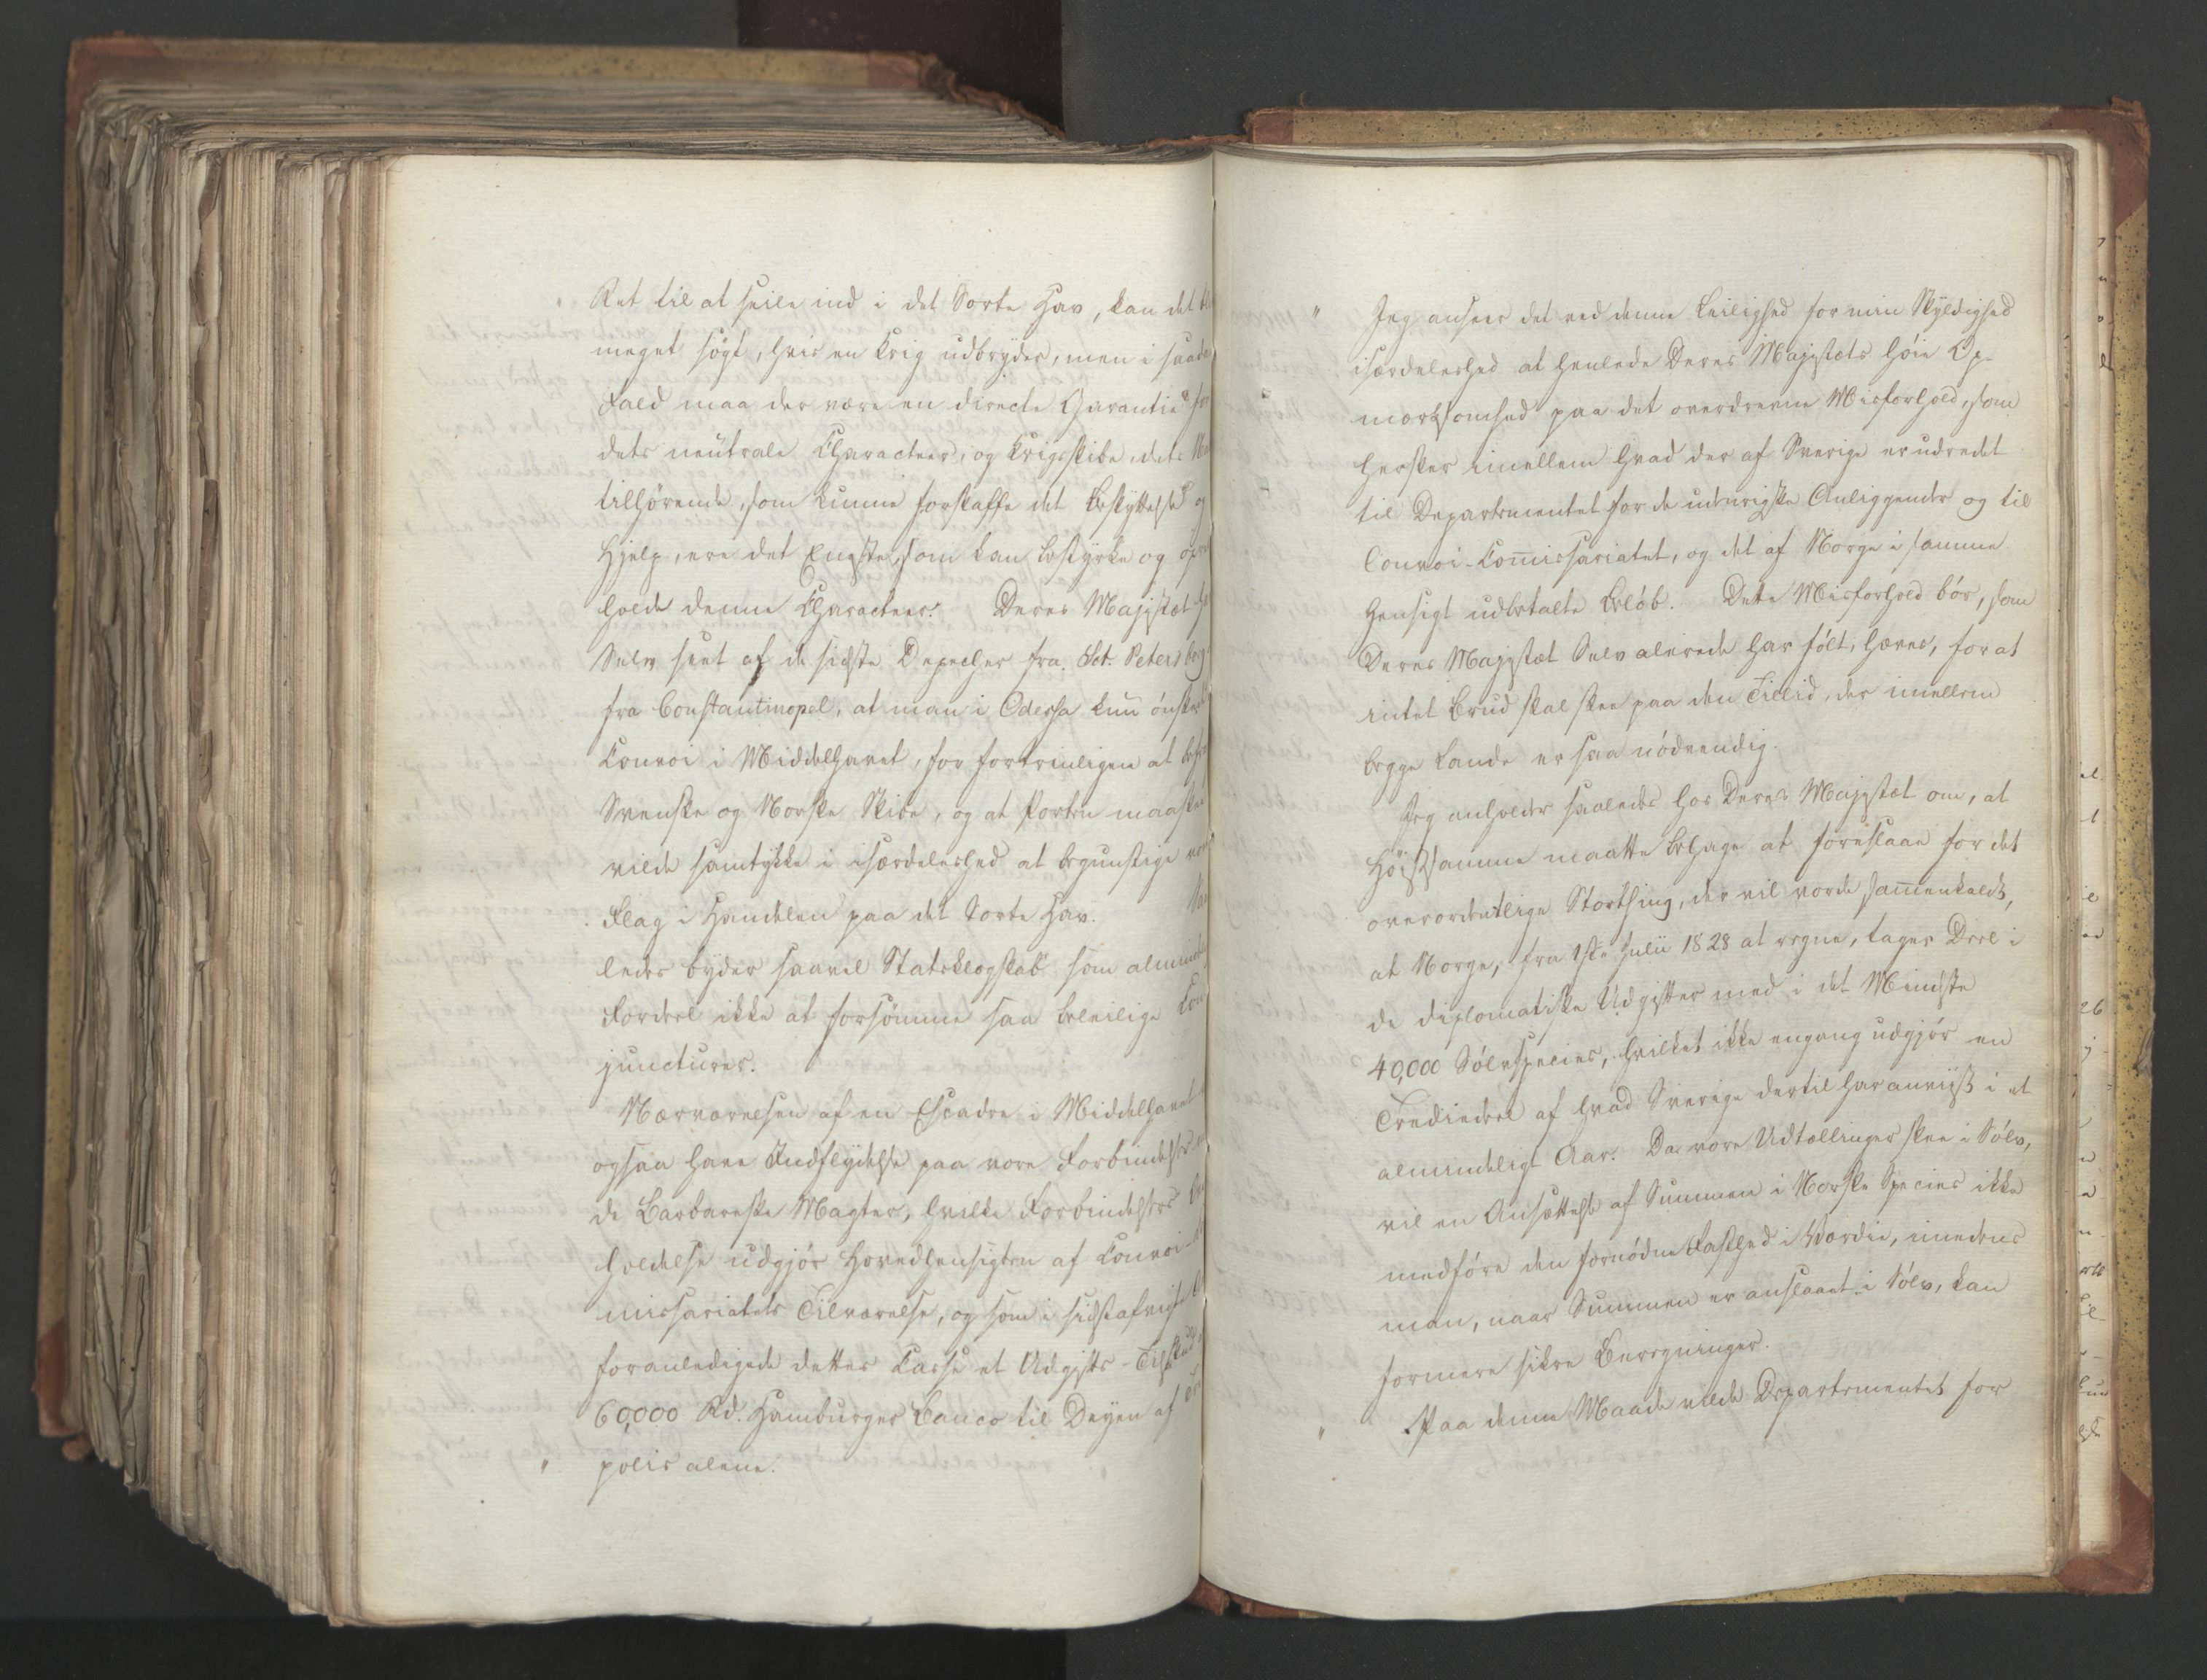 Ret til at seile ind i det Sorte Hav, kan det
meget søgt, hvis en Krig udbryder, men i saada
Fald maa der være en directe Garantie for
dets neutrale Characteer, og Krigsskibe, dets
tilhørende, som kunne forskaffe det Beskyttelse og
Hjelp, ere det Eneste, som kan bestyrke og opret
holde denne Characteer. Deres Majestæt
Selv seet af de sidste Depecher fra Sct. Petersborg
fra Constantinopel, at man i Odessa kun ønskede
Convoi i Middelhavet, for fortrinligen at
Svenske og Norske Skibe, og at Porten maaskee
vilde samtykke i isærdeleshed at begunstige vort
Flag i Handelen paa det Sorte Hav. Saa
ledes byder saavel Statsklogskab som almindelig
Fordeel ikke at forsømme saa beleilige Con
juncturer.
Nærværelsen af en Escadre i Middelhavet
ogsaa have Indflydelse paa vore Forbindelser
de Barbareske Magter, hvilke Forbindelsers
holdelse udgjør Hovedhensigten af Convoi-
missariatets Tilværelse, og som i sidstafvigte
foranledigede dettes Casse et Udgifts-Tilskud
60,000 Rd. Hamburger Banco til Deyen af Tri
polis alene.
" Jeg anseer det ved denne Leilighed for min Skyldighed
isærdeleshed at henlede Deres Majestæts høie Op-
mærksomhed paa det overdrevne Misforhold, som
hersker imellem hvad der af Sverige er udredet
til Departementet for de udenrigske Anliggender og til
Convoi-Comissariatet, og det af Norge i samme
Hensigt udbetalte Beløb. Dette Misforhold bør, som
Deres Majestæt Selv allerede har følt, hæves, for at
intet Brud skal skee paa den Tillid, der imellem
begge Lande er saa nødvendig.
Jeg anholder saaledes hos Deres Majestæt om, at
Høistsamme maatte behage at foreslaae for det
overordentlige Storthing, der vil vorde samenkaldt,
at Norge, fra 1ste Julii 1828 at regne, tager Deel i
de diplomatiske Udgifter med i det Mindste
40,000 Sølvspecies, hvilket ikke engang udgjør en
Trediedeel af hvad Sverige dertil har anviist i et
almindeligt Aar. Da vore Udtællinger skee i Sølv,
vil en Ansættelse af Summen i Norske Species ikke
medføre den fornødne Fasthed i Værdie, imedens
man, naar Summen er anslaaet i Sølv, kan
formere sikre Beregninger.
" Paa denne Maade vilde Departementet for